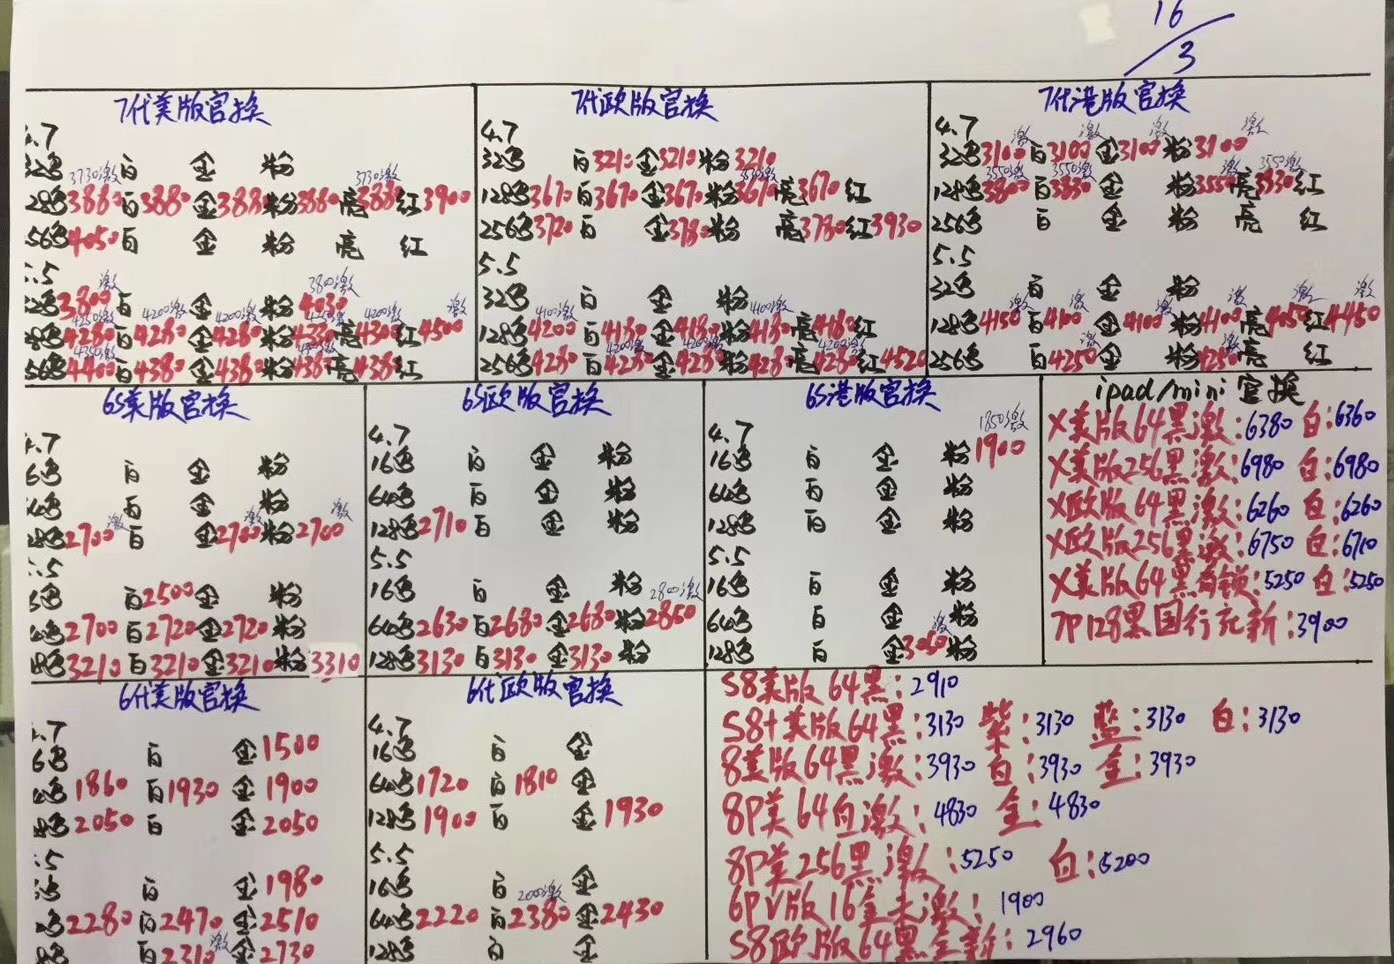 16/3
7代美版官换
.7
32G 白 金 粉
3730激 3730激
28G3880 白3880 金3880 粉3880 亮3880 红3900
56G4050 白 金 粉 亮 红
.5
激 3800激
2G3800 白 金 粉4030
4250激 4200激 4200激 4200激 激
28G4280 白4280 金4280 粉4280 亮4300 红4500
4350激
56G4400 白4380 金4380 粉438 亮438 红
7代欧版官换
4.7
32G 白3210 金3210 粉3210
128G3670 白3670 金3670 粉3670 亮3670 红
256G3720 白 金3780 粉 亮3780 红3930
5.5
32G 白 金 粉
4100激 4100激
128G4200 白4180 金4180 粉4180 亮4180 红
4200激 4200激 4200激
256G4280 白4280 金4280 粉4280 亮4280 红4520
7代港版官换
4.7
激 激 激 激
32G3100 白3100 金3100 粉3100
3550激 3550激 激 3550激
128G3800 白3830 金 粉3550 亮3830 红
256G 白 金 粉 亮 红
5.5
32G 白 金 粉
激 激 激 激 激 激
128G4150 白4100 金4100 粉4100 亮4050 红4450
激 激
256G 白4250 金 粉4250 亮 红
6S美版官换
.7
6G 白 金 粉
4G 白 金 粉
激 激 激
28G2700 白 金2700 粉2700
.5
6G 白2500 金 粉
4G2700 白2720 金2720 粉
28G3210 白3210 金3210 粉3310
6S欧版官换
4.7
16G 白 金 粉
64G 白 金 粉
128G2710 白 金 粉
5.5
16G 白 金 粉
2800激
64G2630 白2680 金2680 粉2850
128G3130 白3130 金3130 粉
6S港版官换
4.7
1850激
16G 白 金 粉1900
64G 白 金 粉
128G 白 金 粉
5.5
16G 白 金 粉
64G 白 金 粉
激
128G 白 金3050 粉
ipad/mini官换
X美版64黑激:6380 白:6360
X美版256黑激:6980 白:6980
X欧版64黑激:6260 白:6260
X欧版256黑激:6750 白:6710
X美版64黑有锁:5250 白:5250
7P128黑国行充新:3900
6代美版官换
.7
6G 白 金1500
4G1860 白1930 金1900
8G2050 白 金2050
.5
6G 白 金1980
4G2280 白2470 金2510
激
8G 白2310 金2730
6代欧版官换
4.7
16G 白 金
64G1720 白1810 金
128G1900 白 金1930
5.5
16G 白 金
激
64G2220 白2380 金2430
128G 白 金
S8美版64黑:2910
S8+美版64黑:3130 紫:3130 蓝:3130 白:3130
8美版64黑激:3930 白:3930 金:3930
8P美64白激:4830 金:4830
8P美256黑激:5250 白:5200
6PV版16金未激:1900
S8欧版64黑全新:2960